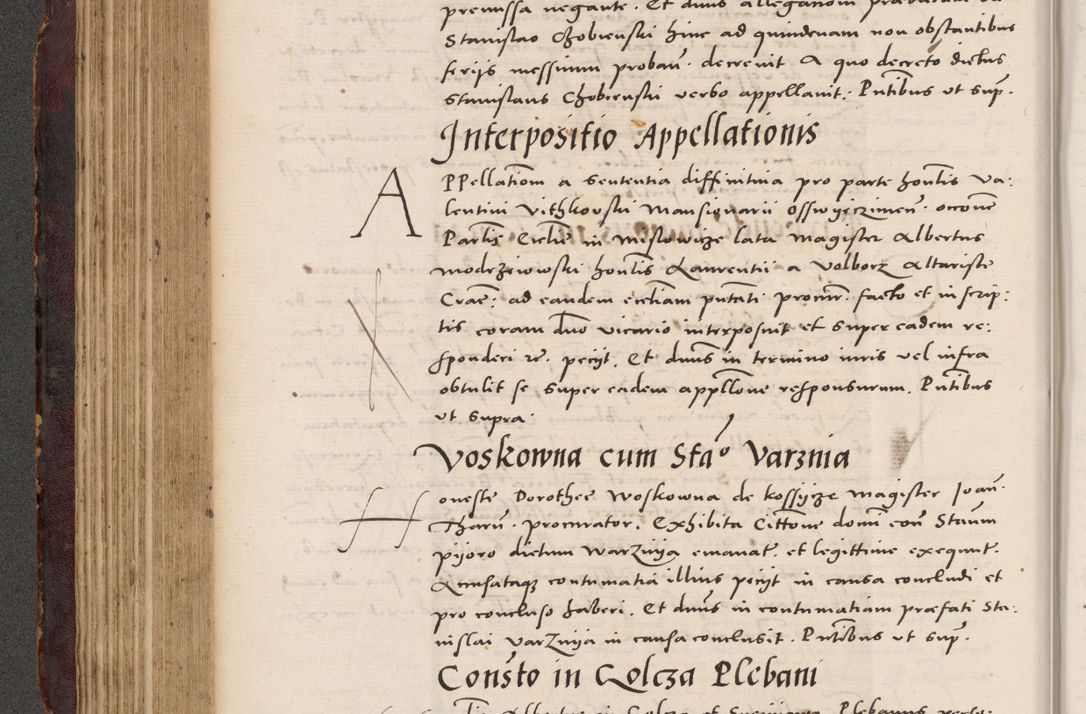 premissa negante. Et dnus allegationem
Stanislao Chobienski hinc ad quindenam non obstantibus
ferijs messium proban. decrevit A quo decreto dictus
Stanislaus Chobienski verbo appellavit. Pntibus ut sup.
Interpositio Appellationis
APPellationi a sententia diffinitiva pro parte honlis Va:
lentini Vithkovski Mansionarii osswyeczimen.
Partis Ecclie in Mislowicze lata Magister Albertus
Modrzewowski honlis Laurentii a Volborz Altariste
Crac. ad eandem eccliam putati procur. facto et in scrip:
tis coram dno vicario interposuit et super eadem re:
sponderi rc. peciit. Et dnus in termino iuris vel infra
obtulit se super eadem appllone responsurum. Pntibus
ut supra.
Voskowna cum Stao Varznia
Honeste Dorothee Woskowna de Kossycze Magister Joan.
Tharn. procurator. Exhibita Cittone domi con Staum
pijoro dictum Warznija emanat. et legittime exequut.
Accusataque contumatia illius peciit in causa concludi et
pro concluso haberi. Et dnus in contumatiam præfati Sta:
nislai Varznija in causa conclusit. Pntibus ut sup.
Consto in Golcza Plebani
Albertus in Golcza et Plebanus